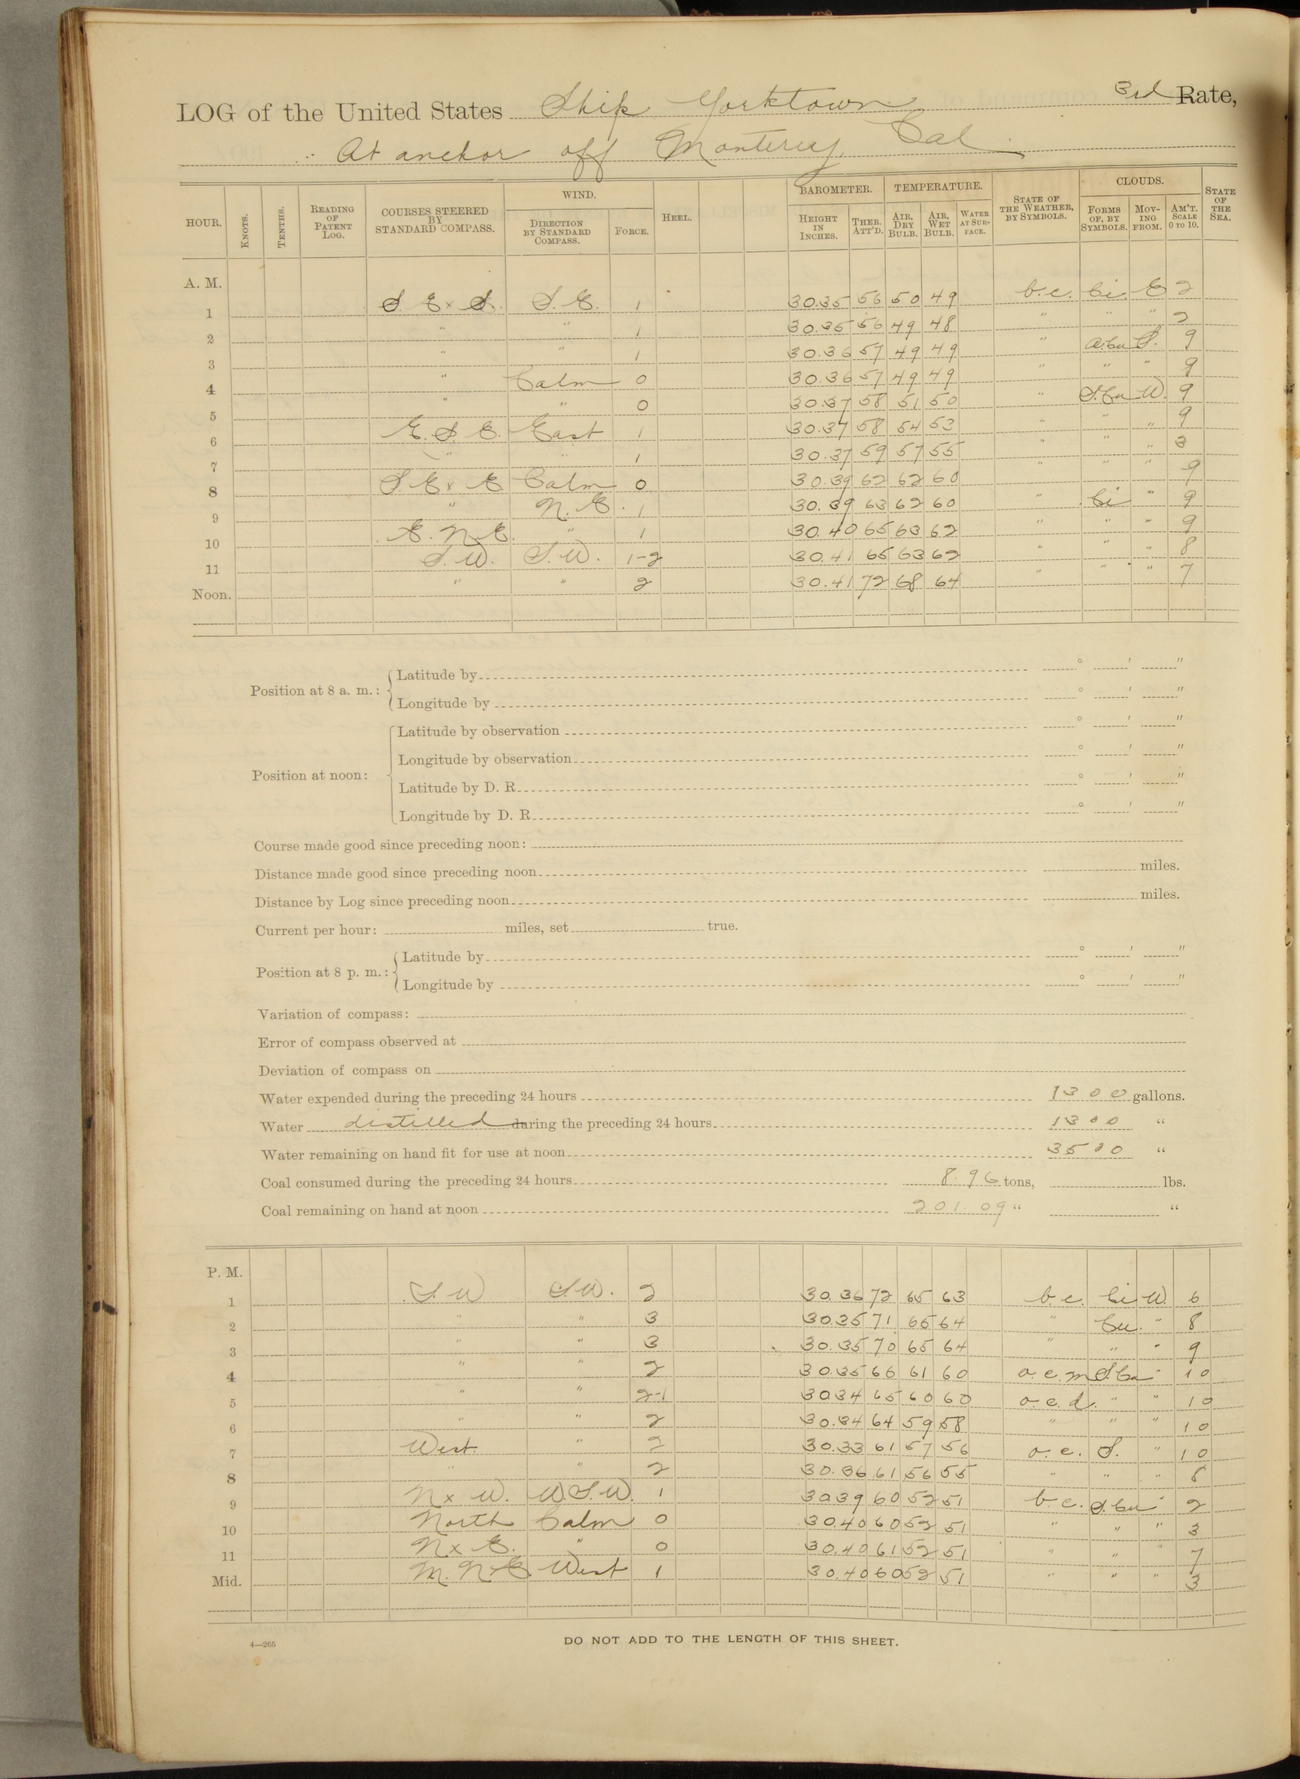 LOG of the United States Ship Yorktown 3rd Rate,
At anchor off Monterey, Cal
HOUR. KNOTS. TENTHS. READING OF PATENT LOG. COURSES STEERED BY STANDARD COMPASS. WIND. DIRECTION BY STANDARD COMPASS. FORCE. HEEL. BAROMETER. HEIGHT IN INCHES. THER. ATT'D. TEMPERATURE. AIR, DRY BULB. AIR, WET BULB. WATER AT SURFACE. STATE OF THE WEATHER, BY SYMBOLS. CLOUDS. FORMS OF, BY SYMBOLS. MOVING FROM. AM'T. SCALE 0 TO 10. STATE OF THE SEA.
A. M.
1 S E x S. S. E. 1 30.35 56 50 49 b.c. Ci E 2
2 " " 1 30.35 56 49 48 " " " 2
3 " " 1 30.36 57 49 49 " A.Cu S. 9
4 " Calm 0 30.36 57 49 49 " " " 9
5 " " 0 30.37 58 51 50 " S.Cu W. 9
6 E. S. E. East 1 30.37 58 54 53 " " " 9
7 " " 1 30.37 59 57 55 " " " 3
8 S E x E Calm 0 30.39 62 62 60 " " " 9
9 " N. E. 1 30.39 63 62 60 " Ci " 9
10 E. N. E. " 1 30.40 65 63 62 " " " 9
11 S. W. S. W. 1-2 30.41 65 63 62 " " " 8
Noon. " " 2 30.41 72 68 64 " " " 7
Position at 8 a. m.: Latitude by ° ' "
Longitude by ° ' "
Position at noon: Latitude by observation ° ' "
Longitude by observation ° ' "
Latitude by D. R. ° ' "
Longitude by D. R. ° ' "
Course made good since preceding noon:
Distance made good since preceding noon miles.
Distance by Log since preceding noon miles.
Current per hour: miles, set true.
Position at 8 p. m.: Latitude by ° ' "
Longitude by ° ' "
Variation of compass:
Error of compass observed at
Deviation of compass on
Water expended during the preceding 24 hours 1300 gallons.
Water distilled during the preceding 24 hours 1300 "
Water remaining on hand fit for use at noon 3500 "
Coal consumed during the preceding 24 hours 8.96 tons, lbs.
Coal remaining on hand at noon 201.09 " "
P. M.
1 S. W S. W. 2 30.36 72 65 63 b.c. Ci W. 6
2 " " 3 30.35 71 65 64 " Cu. " 8
3 " " 3 30.35 70 65 64 " " " 9
4 " " 2 30.35 66 61 60 o.c.m S.Cu " 10
5 " " 2-1 30.34 65 60 60 o.c.d. " " 10
6 " " 2 30.34 64 59 58 " " " 10
7 West " 2 30.33 61 57 56 o.c. S. " 10
8 " " 2 30.36 61 56 55 " " " 8
9 N x W. W.S.W. 1 30.39 60 52 51 b.c. S.Cu " 2
10 North Calm 0 30.40 60 52 51 " " " 3
11 N x E. " 0 30.40 61 52 51 " " " 7
Mid. West 1 30.40 60 52 51 " " " 3
4—265
DO NOT ADD TO THE LENGTH OF THIS SHEET.